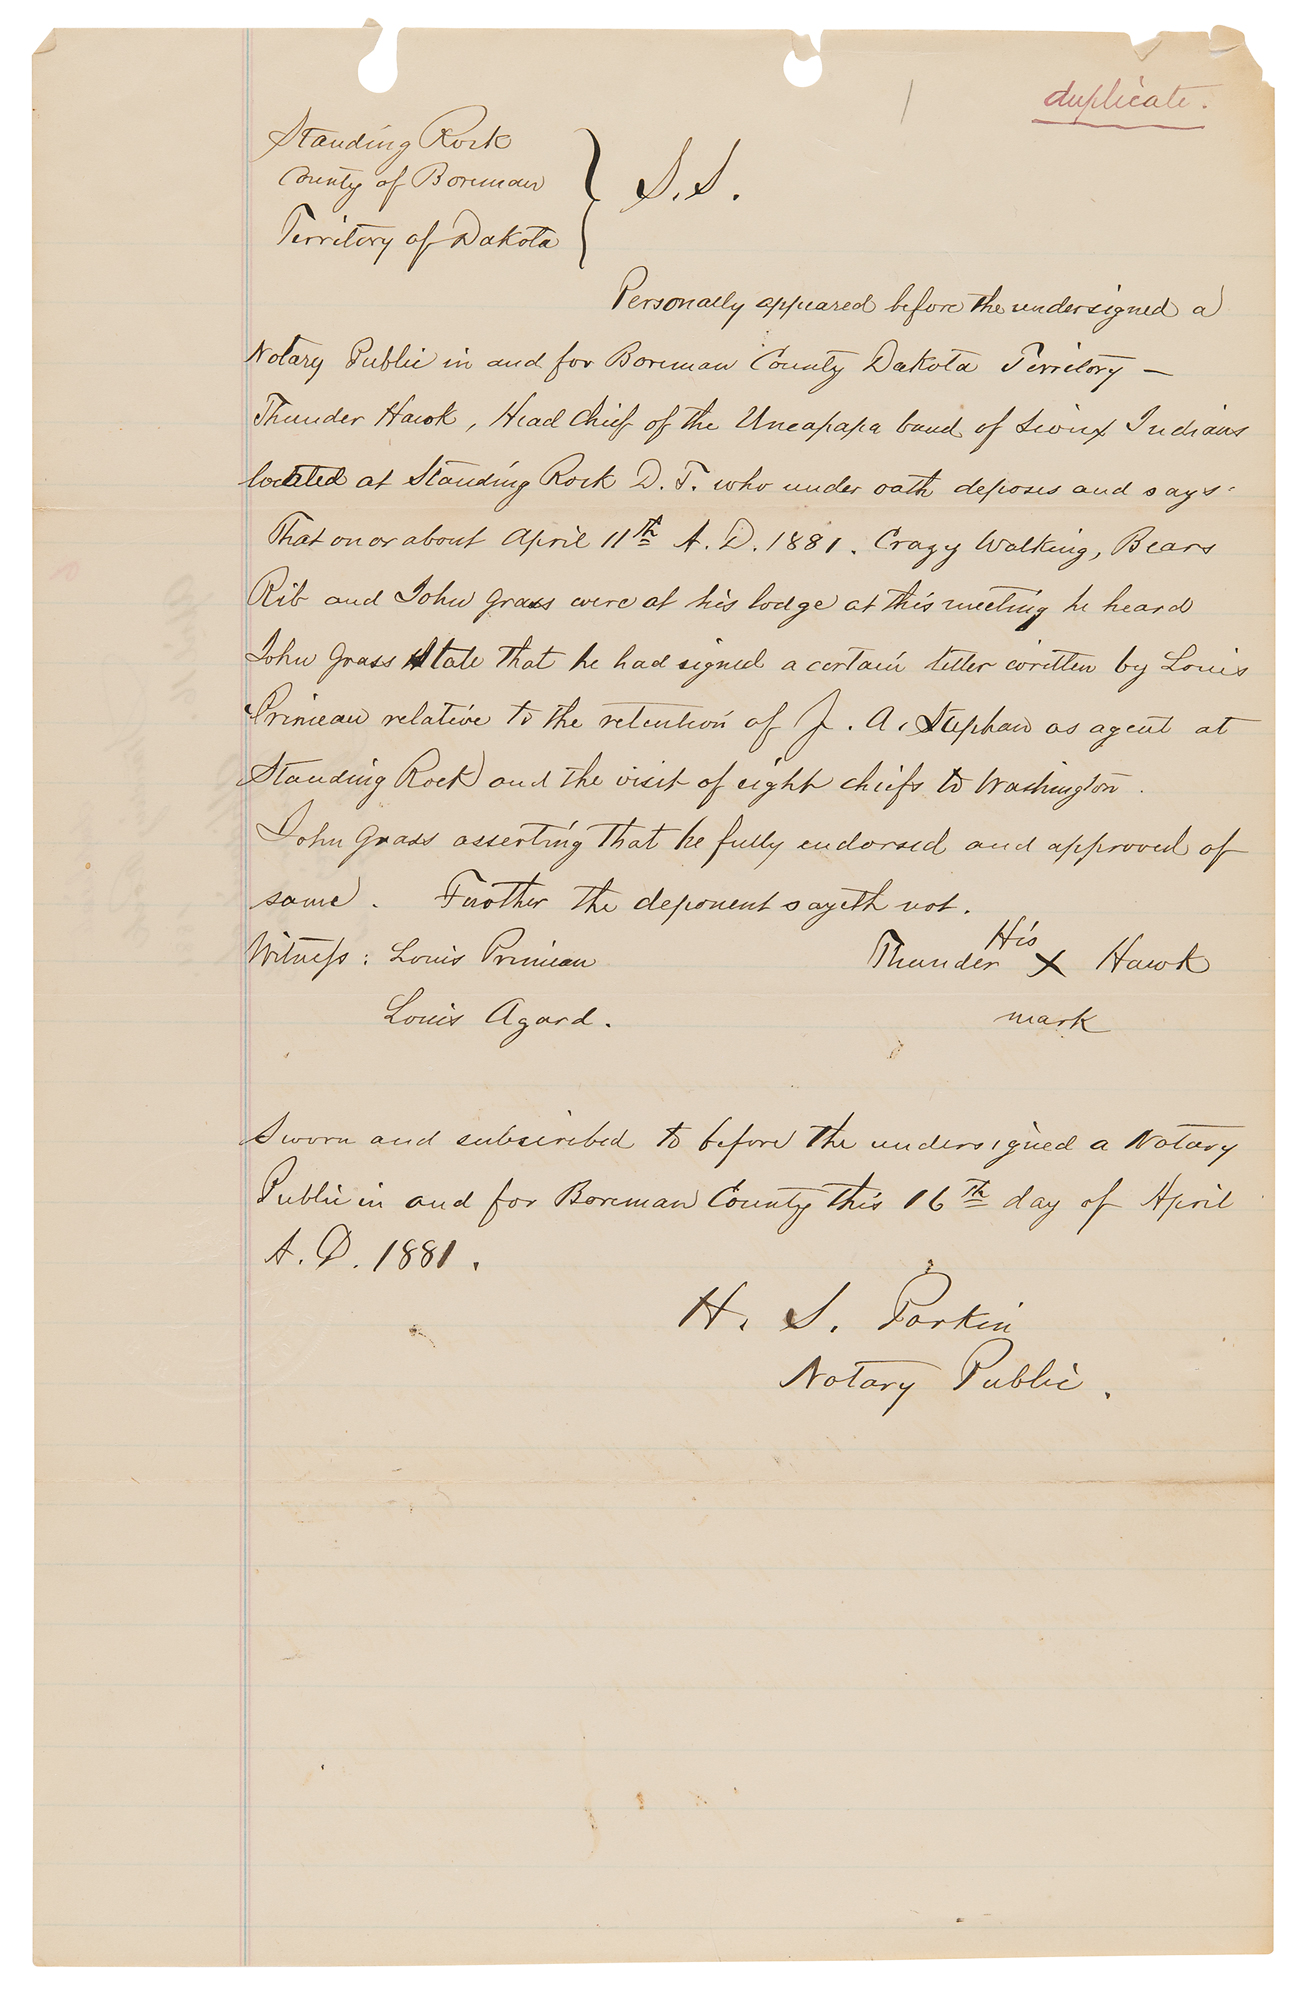 duplicate.
Standing Rock
County of Boreman
Territory of Dakota
S.S.
Personally appeared before the undersigned a
Notary Public in and for Boreman County Dakota Territory —
Thunder Hawk, Head Chief of the Uncapapa band of Sioux Indians
located at Standing Rock D. T. who under oath deposes and says.
That on or about April 11th A. D. 1881. Crazy Walking, Bears
Rib and John Grass were at his lodge at this meeting he heard
John Grass State that he had signed a certain letter written by Louis
Primeau relative to the retention of J. A. Stephan as agent at
Standing Rock and the visit of eight chiefs to Washington.
John Grass asserting that he fully endorsed and approved of
same. Further the deponent sayeth not.
Witness: Louis Primeau
Louis Agard.
His
Thunder X Hawk
mark
Sworn and subscribed to before the undersigned a Notary
Public in and for Boreman County this 16th day of April
A. D. 1881.
H. S. Parkin
Notary Public.